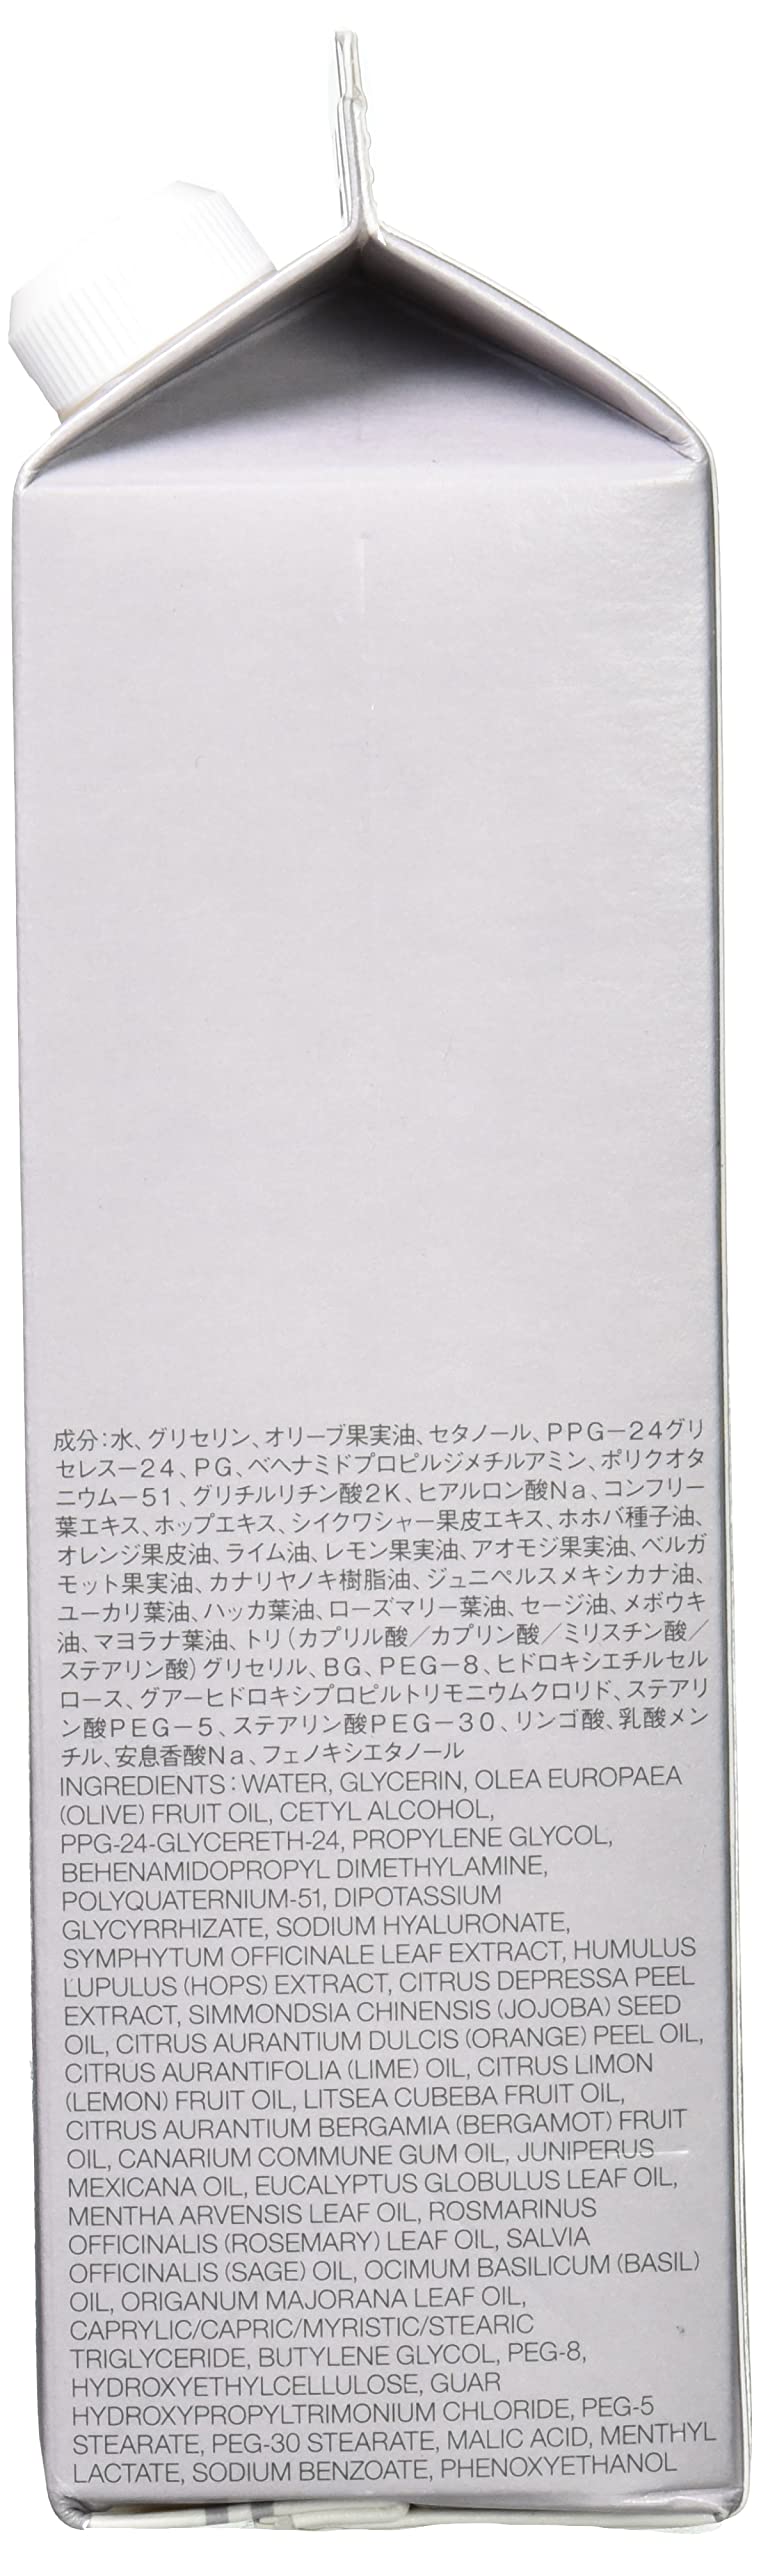 成分:水、グリセリン、オリーブ果実油、セタノール、PPG－24グリ
セレス－24、PG、ベヘナミドプロピルジメチルアミン、ポリクオタ
ニウム－51、グリチルリチン酸2K、ヒアルロン酸Na、コンフリー
葉エキス、ホップエキス、シイクワシャー果皮エキス、ホホバ種子油、
オレンジ果皮油、ライム油、レモン果実油、アオモジ果実油、ベルガ
モット果実油、カナリヤノキ樹脂油、ジュニペルスメキシカナ油、
ユーカリ葉油、ハッカ葉油、ローズマリー葉油、セージ油、メボウキ
油、マヨラナ葉油、トリ(カプリル酸／カプリン酸／ミリスチン酸／
ステアリン酸)グリセリル、BG、PEG－8、ヒドロキシエチルセル
ロース、グアーヒドロキシプロピルトリモニウムクロリド、ステアリ
ン酸PEG－5、ステアリン酸PEG－30、リンゴ酸、乳酸メン
チル、安息香酸Na、フェノキシエタノール
INGREDIENTS:WATER, GLYCERIN, OLEA EUROPAEA
(OLIVE) FRUIT OIL, CETYL ALCOHOL,
PPG-24-GLYCERETH-24, PROPYLENE GLYCOL,
BEHENAMIDOPROPYL DIMETHYLAMINE,
POLYQUATERNIUM-51, DIPOTASSIUM
GLYCYRRHIZATE, SODIUM HYALURONATE,
SYMPHYTUM OFFICINALE LEAF EXTRACT, HUMULUS
LUPULUS (HOPS) EXTRACT, CITRUS DEPRESSA PEEL
EXTRACT, SIMMONDSIA CHINENSIS (JOJOBA) SEED
OIL, CITRUS AURANTIUM DULCIS (ORANGE) PEEL OIL,
CITRUS AURANTIFOLIA (LIME) OIL, CITRUS LIMON
(LEMON) FRUIT OIL, LITSEA CUBEBA FRUIT OIL,
CITRUS AURANTIUM BERGAMIA (BERGAMOT) FRUIT
OIL, CANARIUM COMMUNE GUM OIL, JUNIPERUS
MEXICANA OIL, EUCALYPTUS GLOBULUS LEAF OIL,
MENTHA ARVENSIS LEAF OIL, ROSMARINUS
OFFICINALIS (ROSEMARY) LEAF OIL, SALVIA
OFFICINALIS (SAGE) OIL, OCIMUM BASILICUM (BASIL)
OIL, ORIGANUM MAJORANA LEAF OIL,
CAPRYLIC/CAPRIC/MYRISTIC/STEARIC
TRIGLYCERIDE, BUTYLENE GLYCOL, PEG-8,
HYDROXYETHYLCELLULOSE, GUAR
HYDROXYPROPYLTRIMONIUM CHLORIDE, PEG-5
STEARATE, PEG-30 STEARATE, MALIC ACID, MENTHYL
LACTATE, SODIUM BENZOATE, PHENOXYETHANOL